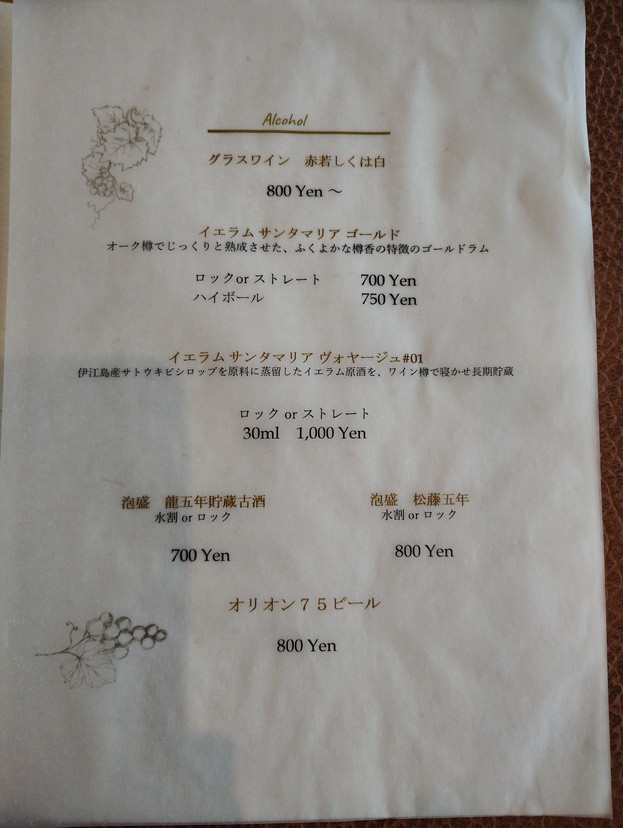 Alcohol
グラスワイン　赤若しくは白
800 Yen ～
イエラム サンタマリア ゴールド
オーク樽でじっくりと熟成させた、ふくよかな樽香の特徴のゴールドラム
ロックor ストレート　700 Yen
ハイボール　750 Yen
イエラム サンタマリア ヴォヤージュ#01
伊江島産サトウキビシロップを原料に蒸留したイエラム原酒を、ワイン樽で寝かせ長期貯蔵
ロック or ストレート
30ml　1,000 Yen
泡盛　龍五年貯蔵古酒
水割 or ロック
700 Yen
泡盛　松藤五年
水割 or ロック
800 Yen
オリオン７５ビール
800 Yen